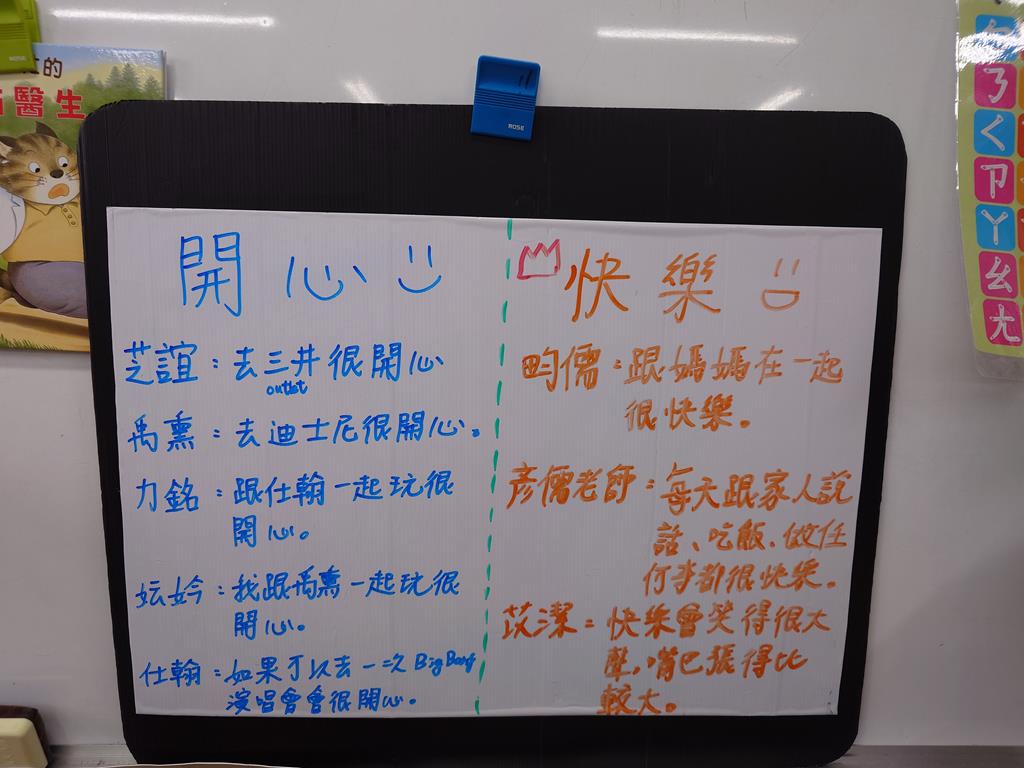 的
醫生
ROSE
ROSE
開心
芝誼：去三井很開心
outlet
禹熏：去迪士尼很開心。
力銘：跟仕翰一起玩很
開心。
妘妗：找跟禹熏一起玩很
開心。
仕翰：如果可以去一次 BigBang
演唱會會很開心。
快樂
畇儒：跟媽媽在一起
很快樂。
彥儒老師：每天跟家人說
話、吃飯、做任
何事都很快樂。
苡潔：快樂會笑得很大
聲，嘴巴張得比
較大。
ㄅ
ㄋ
ㄑ
ㄗ
ㄚ
ㄠ
ㄤ